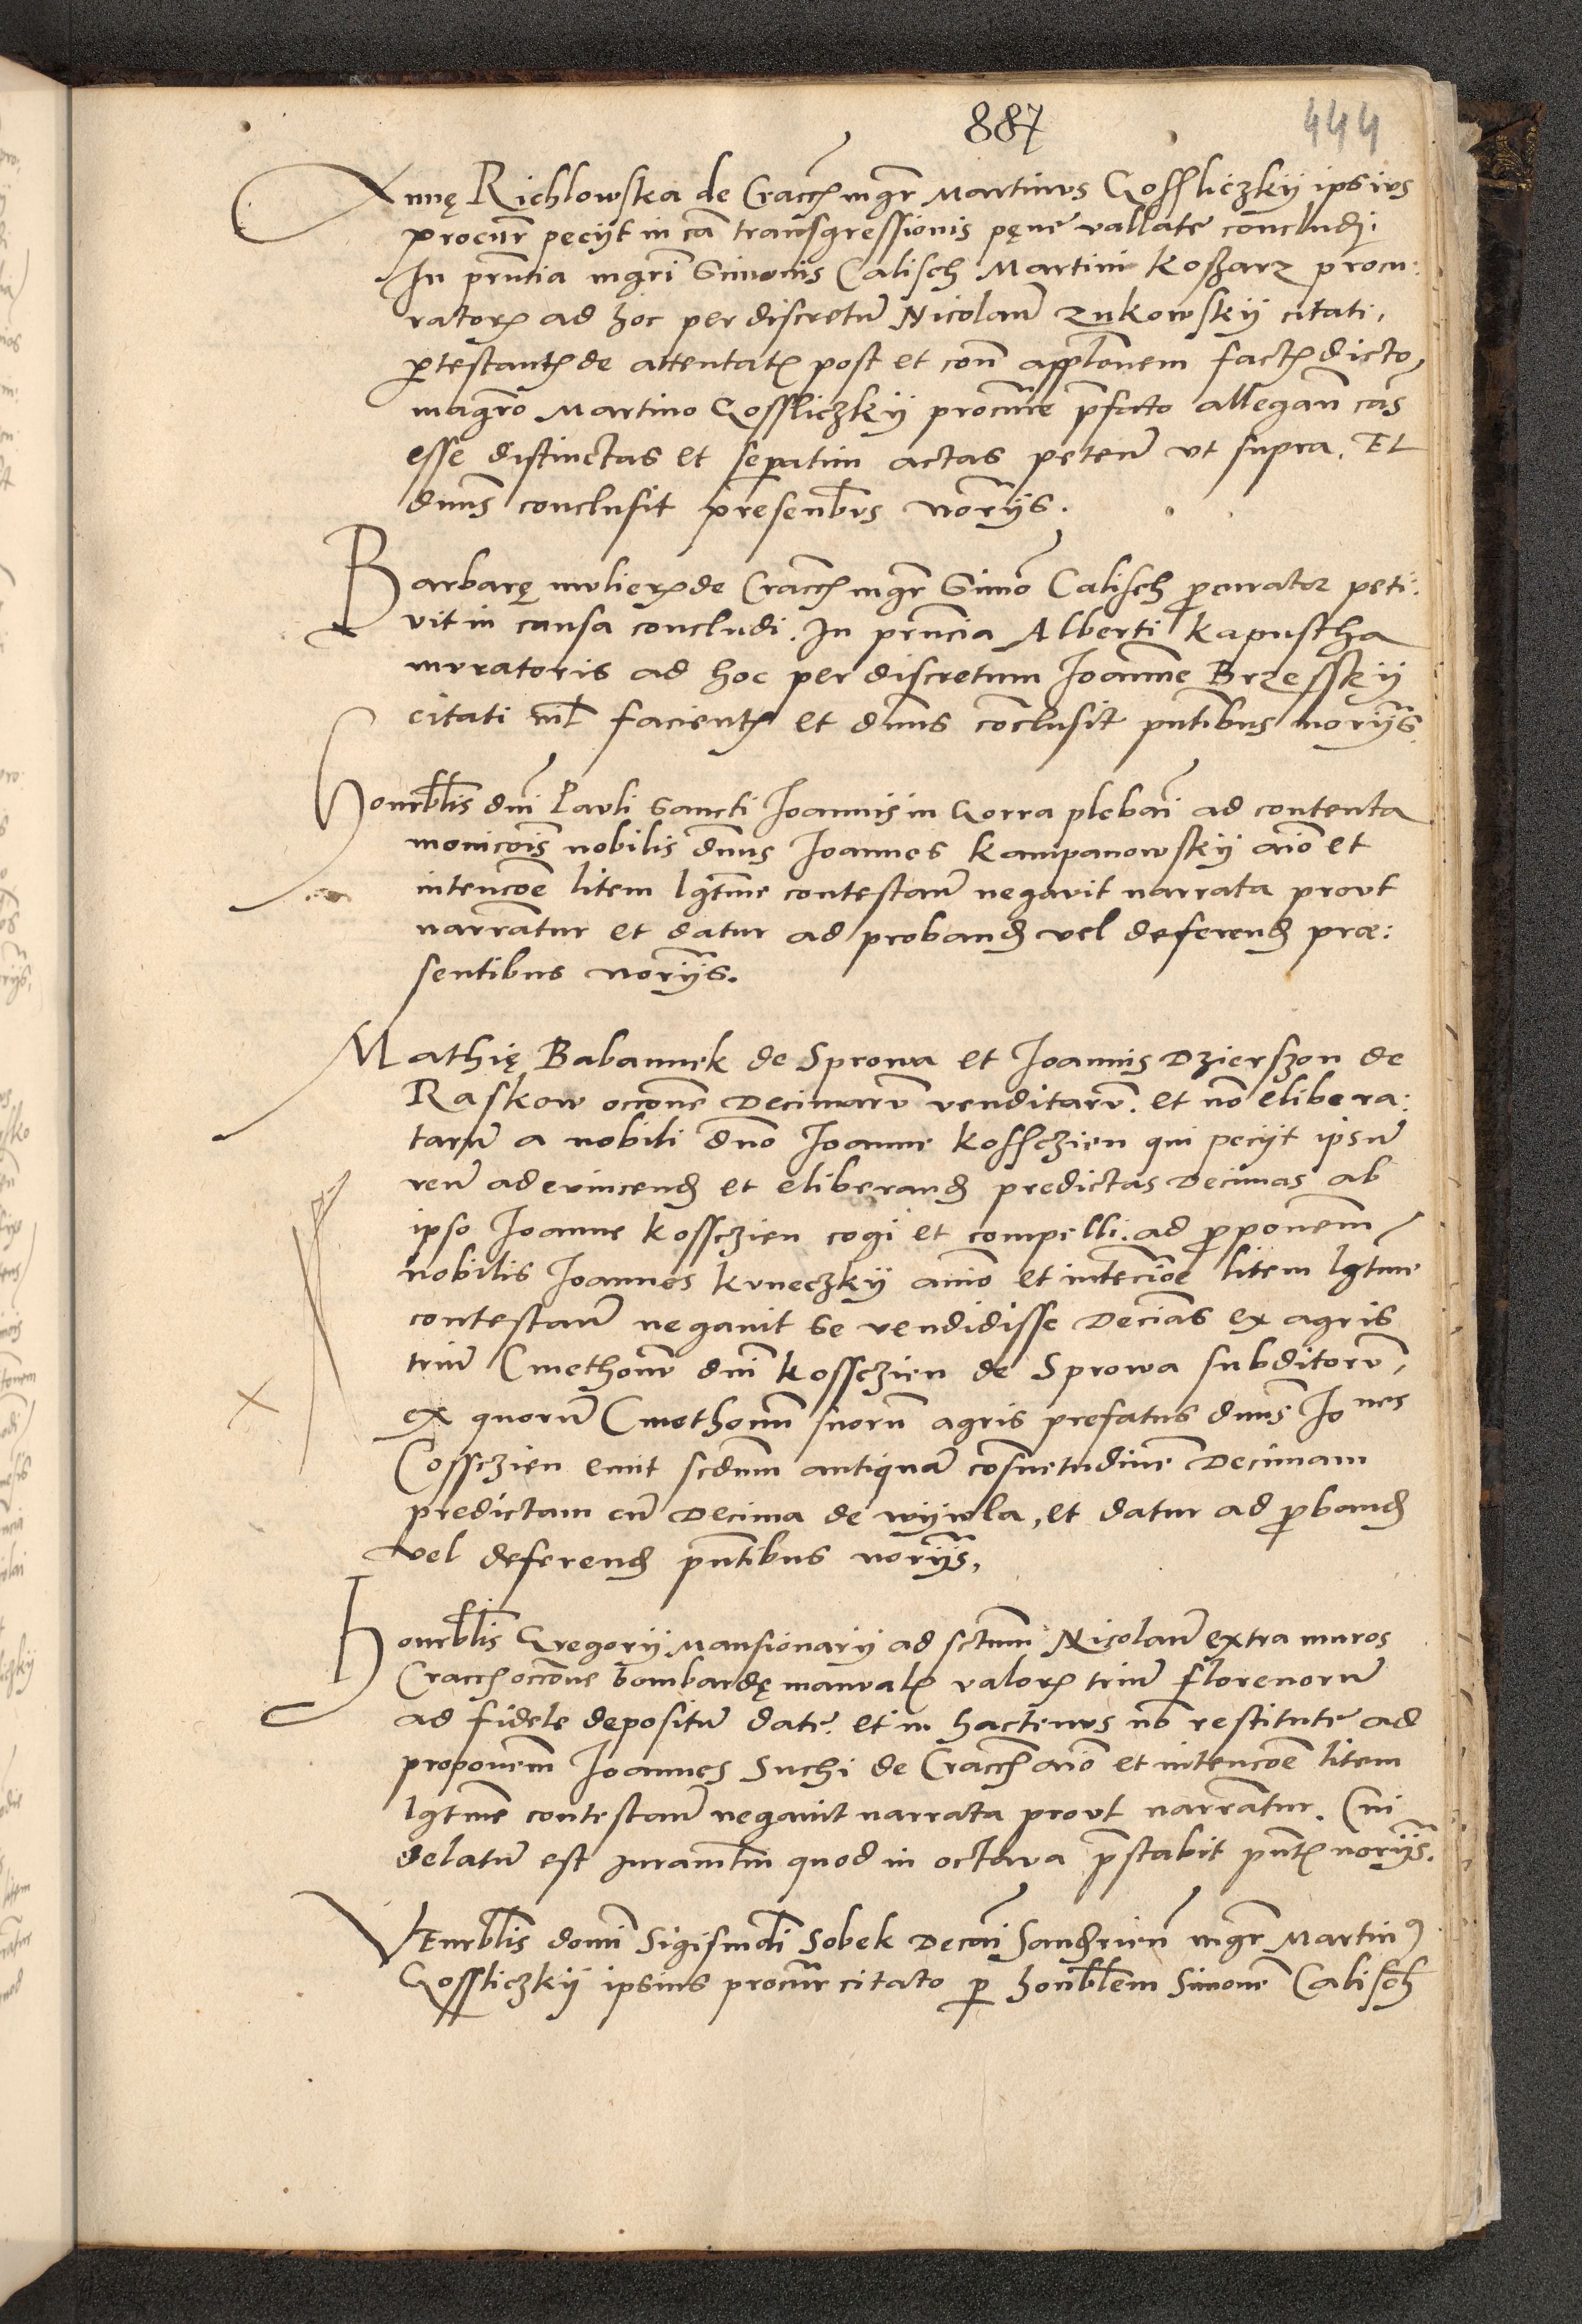 887
444
Annę Richlowska de Cracɔ mgr̄ Martinus Gosliczkÿ ipsius
procur̄ pecÿt in cā transgressionis pęnē vallatē concludi.
In pn̄tia mgrī Simonis Calisch Martini Koßarz procu:
ratoꝝ ad hoc per discretū Nicolaū Zukowskÿ citati,
ꝓtestantꝭ de attentatꝭ post et con̄ appl̄onem factꝭ dicto
magrō Martino Gossliczkÿ procur̄e p̄fato allegan̄ cās
esse distinctas et separatim actas peten̄ vt supra. Et
dnūs conclusit presentibus notarÿs.
Barbarę mulieꝝ de Cracɔ mgr̄ Simō Calisch ꝓcurator peti:
vit in causa concludi. In pn̄cia Alberti Kapustha
muratoris ad hoc per discretum Joannē Brzesskÿ
citati nīl facientꝭ et dnūs conclusit pn̄tibus norÿs.
Honorblīs dnī Pauli Sancti Joannis in Gorra plebanī ad contenta
monicoīs nobilis dnūs Joannes Kampanowskÿ aīo et
intencoē litem lgtīme contestan̄ negavit narrata prout
narrantur et datur ad proband vel deferend præ:
sentibus norÿs.
Mathię Babaunek de Sprowa et Joannis Dzierszon de
Raskow occōne Decimarū venditarū et nō elibera:
tarum a nobili dnō Joanne Kossczien qui pecÿt ipsū
reū ad evincend et eliberand predictas Decimas ab
ipso Joanne Kossczien cogi et compelli. ad ꝓponem
nobilis Joannes Kuneczkÿ aīo et intencioē litem lgtīme
contestan̄ negauit se vendidisse Decīas ex agris
triū Cmethonū dnī Kossczien de Sprowa subditorū,
ex quorū Cmethonū suorū agris prefatus dnūs Jo nes
Cossczien emit scdūm antiquā cōsuetudinē Decimam
predictam cū Decima de wÿwla, et datur ad ꝓband
vel deferend pn̄tibus norÿs.
Honorblīs Gregorÿ Mansionarÿ ad sctūm Nicolaū extra muros
Cracɔ occōne bombardę manualꝭ valoꝝ triū florenorū
ad fidele depositū datē et in hactenus nō restitutē ad
proponem̄ Joannes Suchi de Cracɔ aīo et intencoē litem
lgtīme contestan̄ negauit narrata prout narrantur. Cui
delatū est juramtūm quod in octava p̄stabit pn̄tꝭ norÿs.
Venerblīs domī Sigismdī Sobek Decanī Sandʒrien̄ mgr̄ Martinꝰ
Gossliczkÿ ipsius procur̄ citato ꝑ honorblēm Simonē Calisch